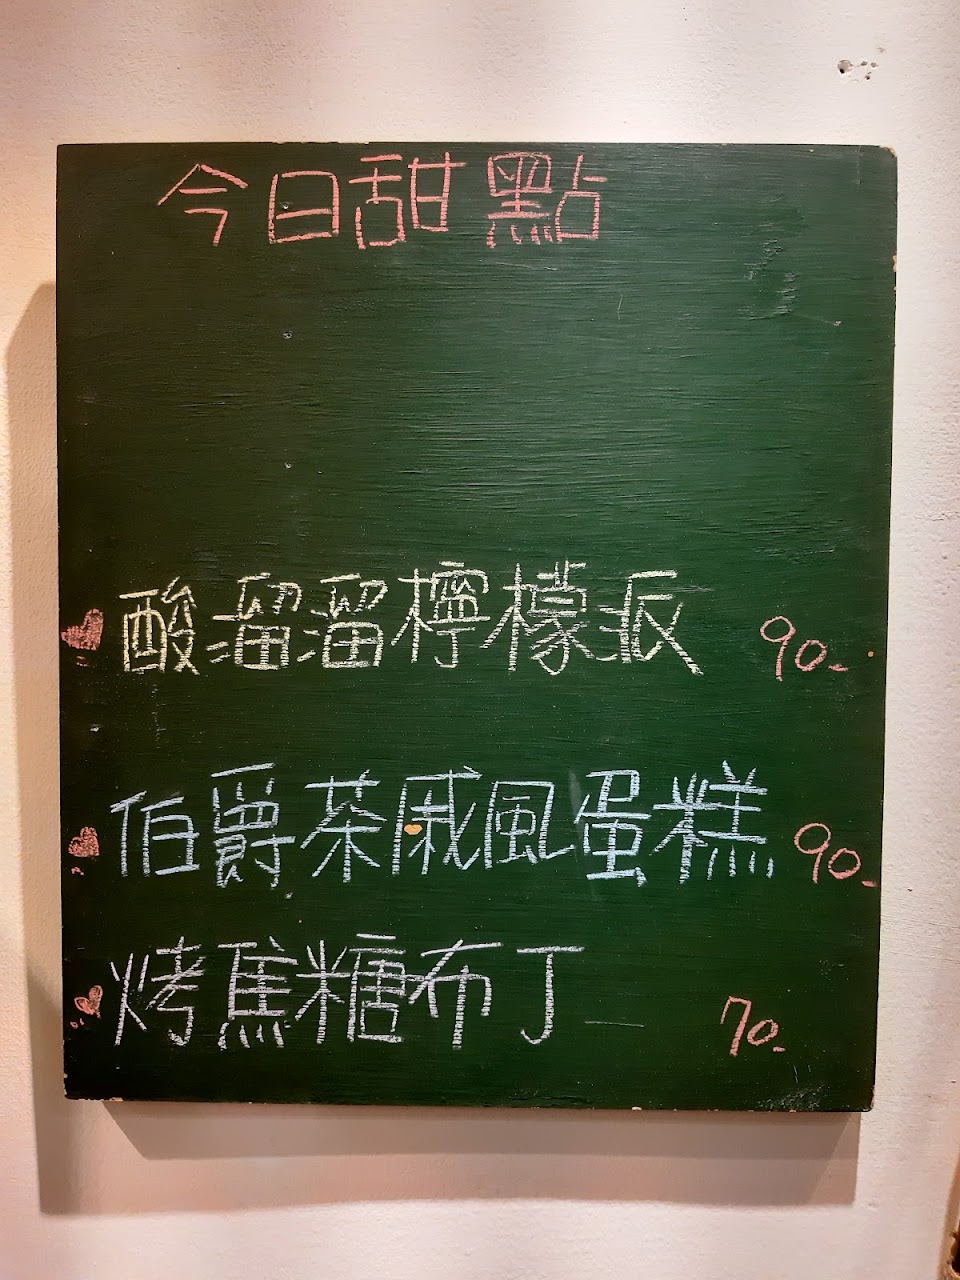 今日甜點
酸溜溜檸檬派 90.-
伯爵茶戚風蛋糕 90.-
烤焦糖布丁 70.-